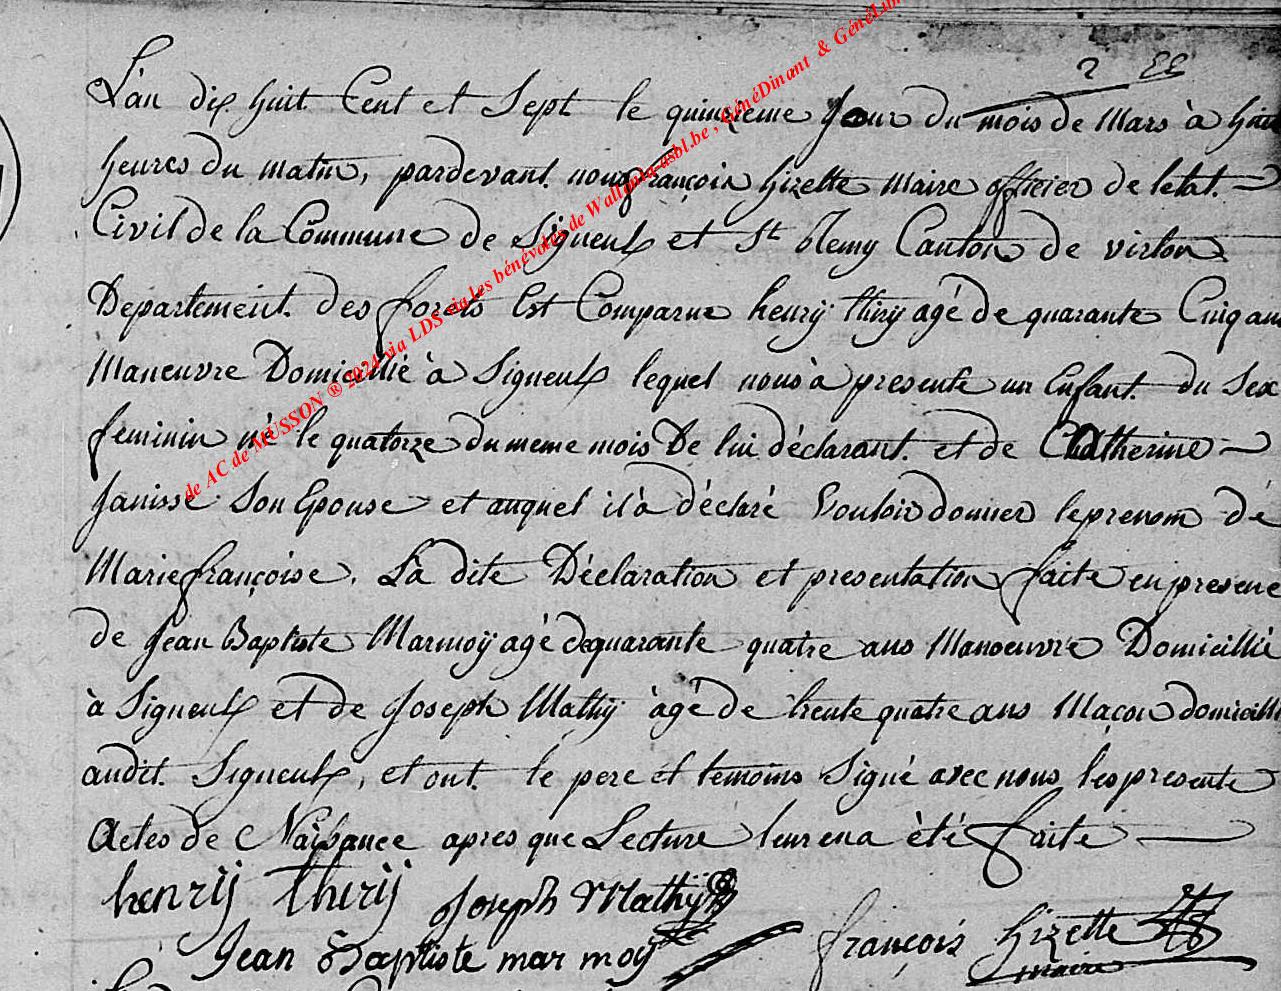 2 EE
L'an dix huit Cent et Sept le quinzieme Jour du mois de Mars à huit
heures du matin, pardevant nous françois hizette Maire officier de letat
Civil de la Commune de Signeulx et St Remy Canton de virton
Departement des forets Est Comparue henrÿ thirÿ agé de quarante Cinq ans
Maneuvre Domicillié à Signeulx lequel nous à presenté un Enfant du Sex
feminin né le quatorze du meme mois De lui déclarant et de Catherine
Janisse Son Epouse et auquel il à déclaré Vouloir donner le prenom de
Marie françoise. La dite Déclaration et presentation faite en presence
de Jean Baptiste Marmoÿ agé de quarante quatre ans Manoeuvre Domicillié
à Signeulx et de Joseph Mathÿ àgé de trente quatre ans Maçon domicillié
audit Signeulx, et ont le pere et temoins Signé avec nous les presente
Actes de Naissance apres que Lecture leur en a èté faite
henrÿ thirÿ Joseph Mathÿ
Jean Baptiste mar moÿ françois hizette
maire
de AC de MUSSON ® 2024 via LDS via les bénévoles de Wallonia-asbl.be , GénéDinant & GénéLux